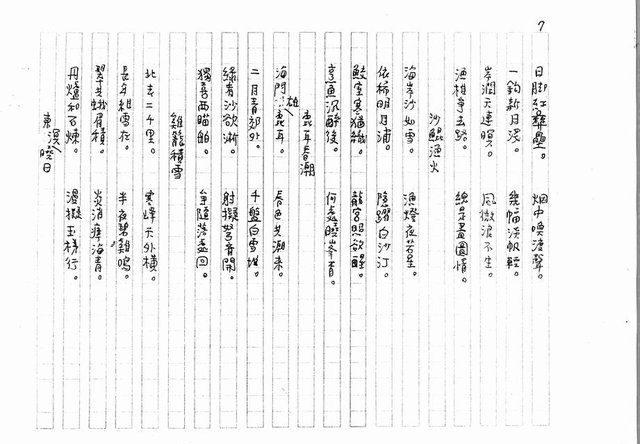 7
日腳紅疊壘。 烟中喚渡聲。
一鈎新月淺。 幾幅淡帆輕。
岸濶天連曉。 風微浪不生。
漁樵爭去路。 總是畫圖情。
沙鯤漁火
海岸沙如雪。 漁燈夜若星。
依稀明月浦。 隱躍白沙汀。
鮫室寒猶織。 龍宮照欲醒。
烹魚沉醉後。 何處曉峯青。
鹿耳春潮
海門雄鹿耳。 春色共潮來。
二月青郊外。 千盤白雪堆。
綠看沙欲漸。 射擬弩齊開。
獨喜西歸舶。 爭隨落處回。
雞籠積雪
北去二千里。 寒峰天外橫。
長年紺雪在。 半夜碧雞鳴。
翠共峨眉積。 炎消瘴海青。
丹爐和石煉。 漫擬玉梯行。
東溟曉日